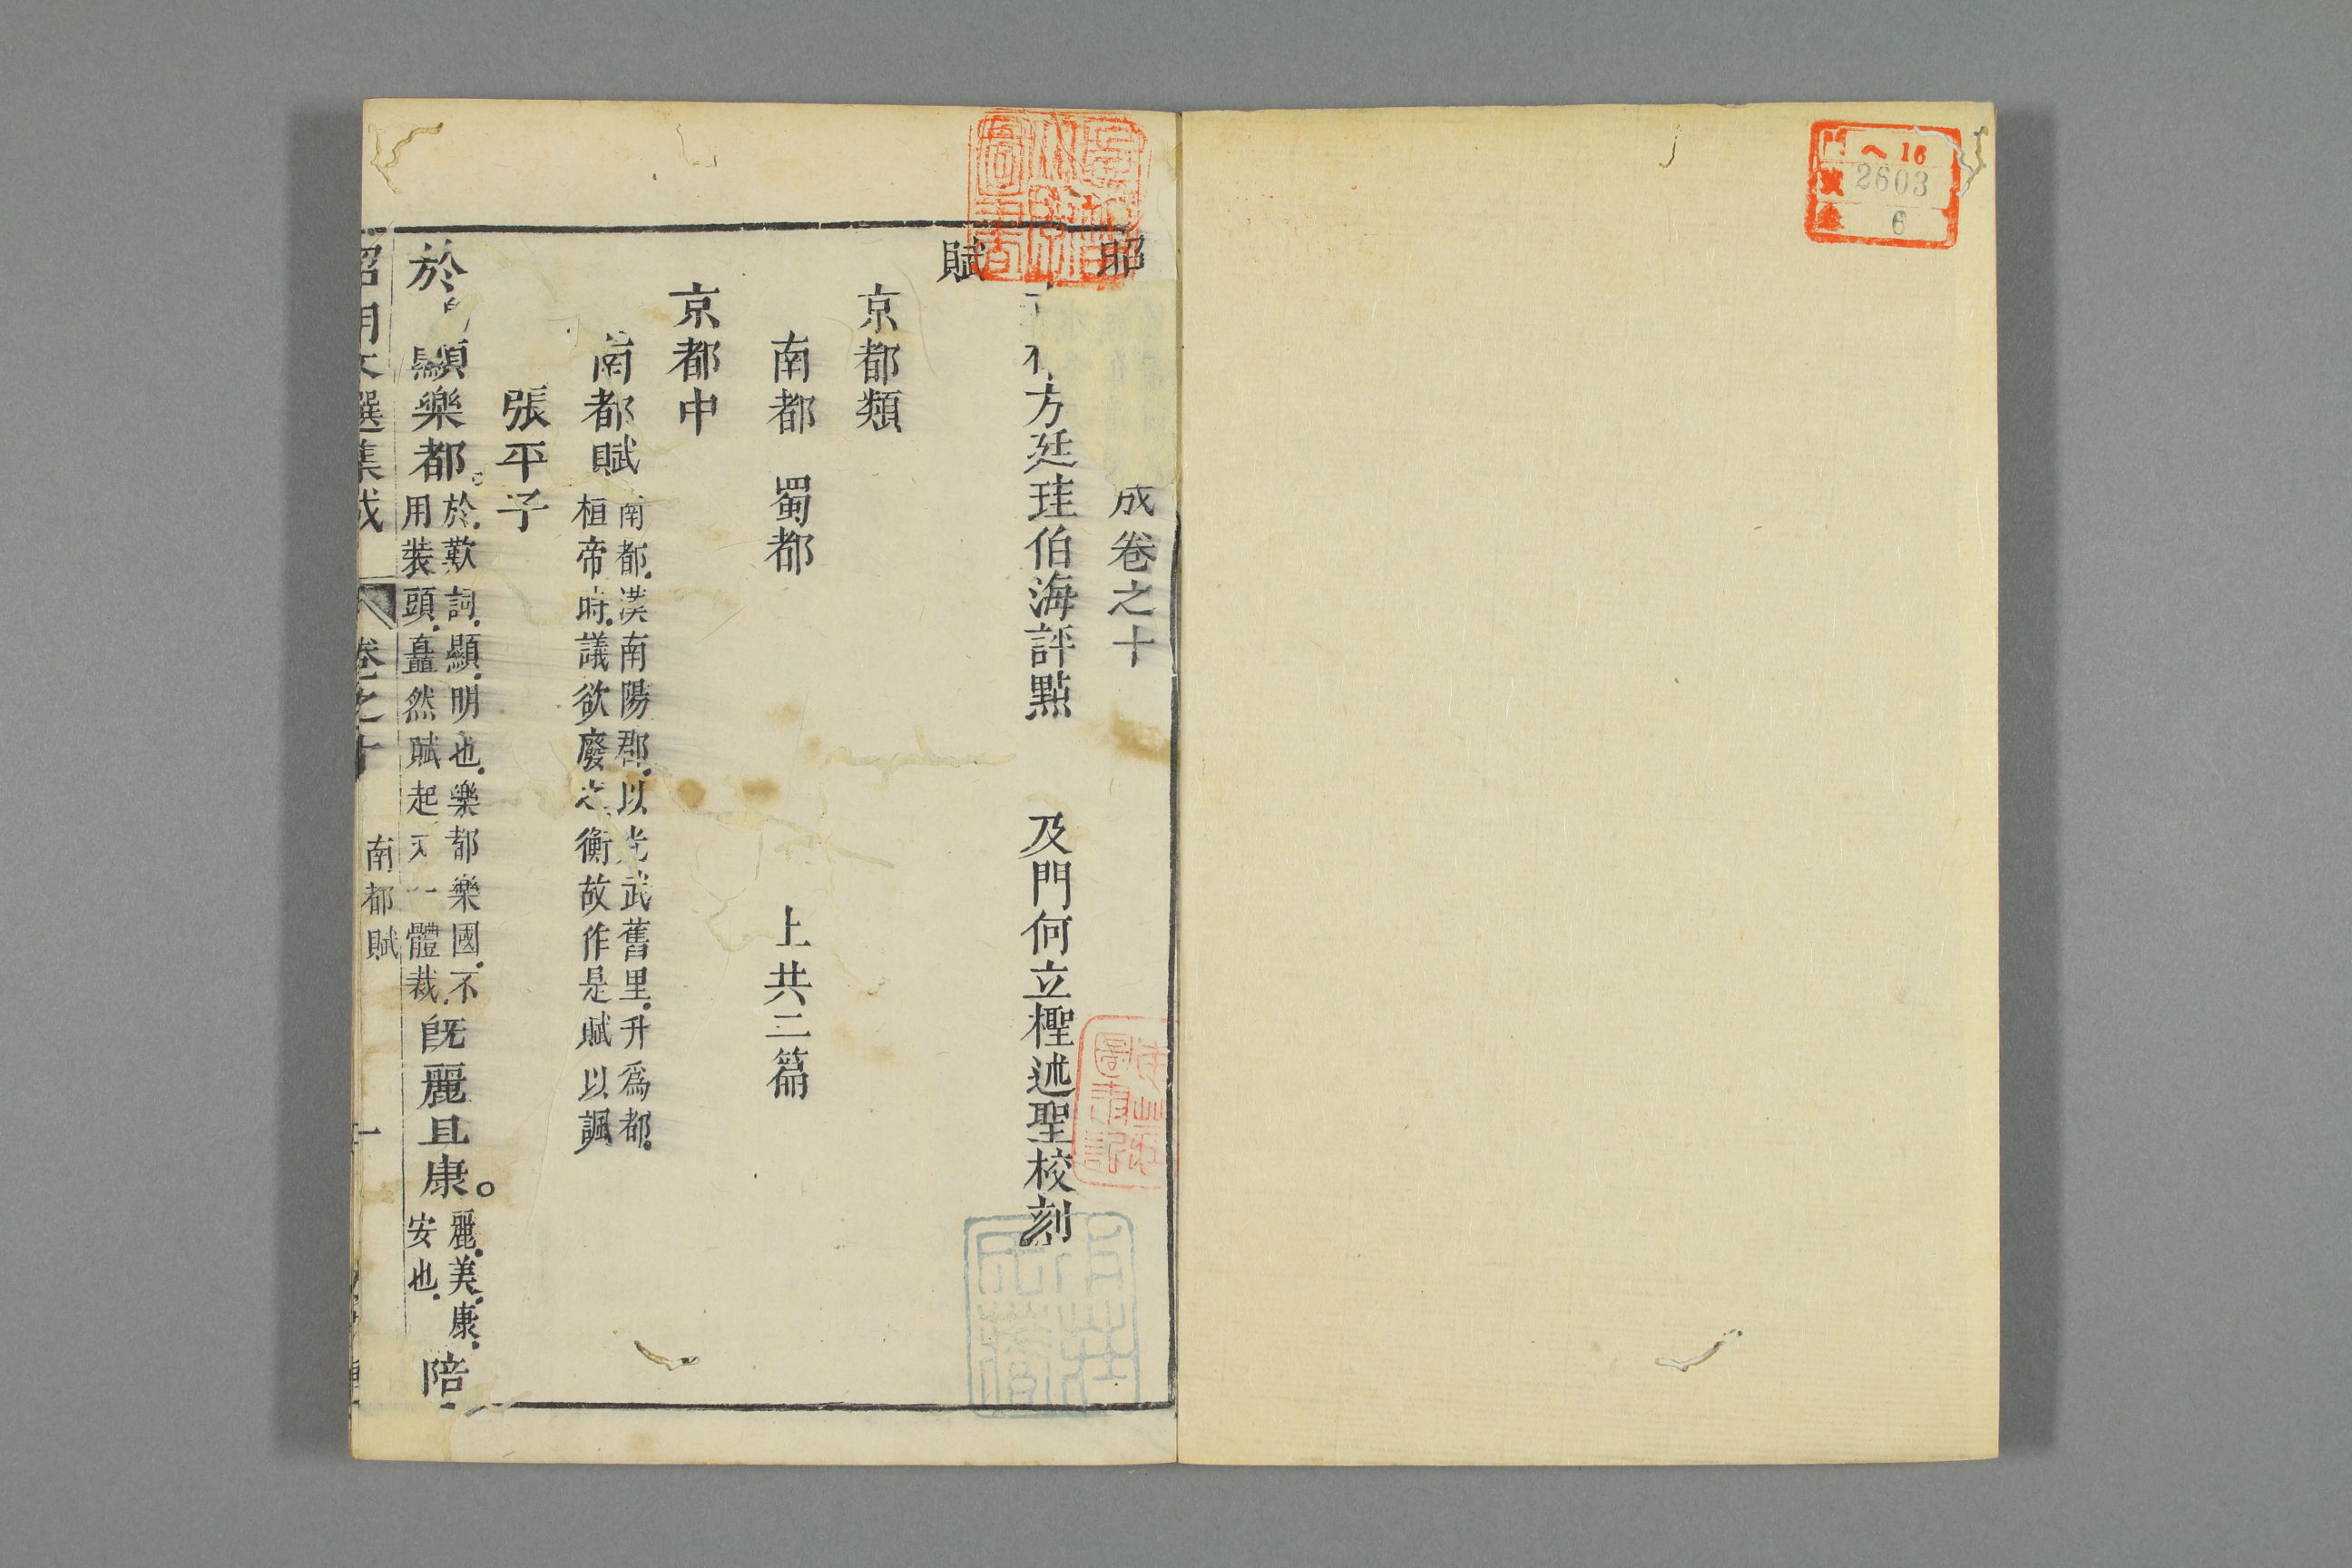 門 ヘ 16
號 2603
卷 6
昭 成卷之十
方廷珪伯海評點 及門何立樫述聖校刻
賦
京都類
南都 蜀都 上共二篇
京都中
南都賦 南都漢南陽郡以光武舊里升爲都
桓帝時議欲廢之衡故作是賦以諷
張平子
於 顯樂都 於歎詞顯明也樂都樂國不
用裝頭矗然賦起又一體裁 既麗且康。 麗美康
安也 陪
昭明文選集成 卷之十 南都賦 一